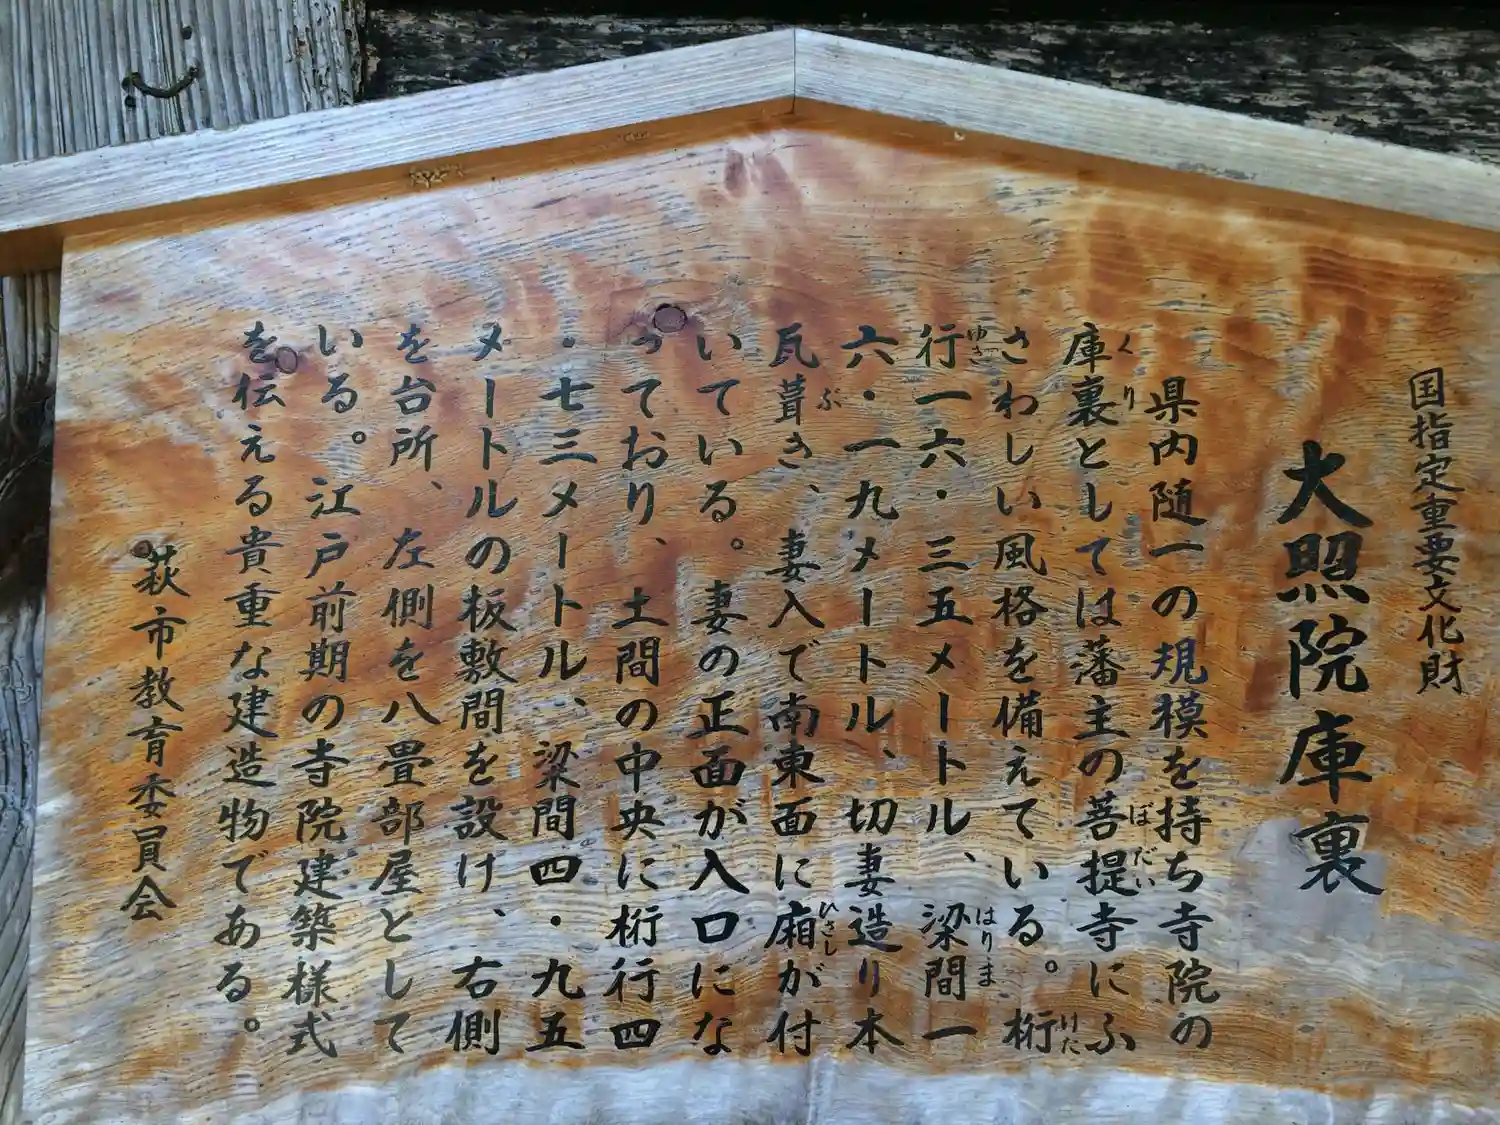 国指定重要文化財
大照院庫裏
県内随一の規模を持ち寺院の
庫裏としては藩主の菩提寺にふ
さわしい風格を備えている。桁
行一六・三五メートル、梁間一
六・一九メートル、切妻造り本
瓦葺き、妻入で南東面に廂が付
いている。妻の正面が入口にな
っており、土間の中央に桁行四
・七三メートル、梁間四・九五
メートルの板敷間を設け、右側
を台所、左側を八畳部屋として
いる。江戸前期の寺院建築様式
を伝える貴重な建造物である。
萩市教育委員会
くり
ぼだい
けた
ゆき
はりま
ぶ
ひさし